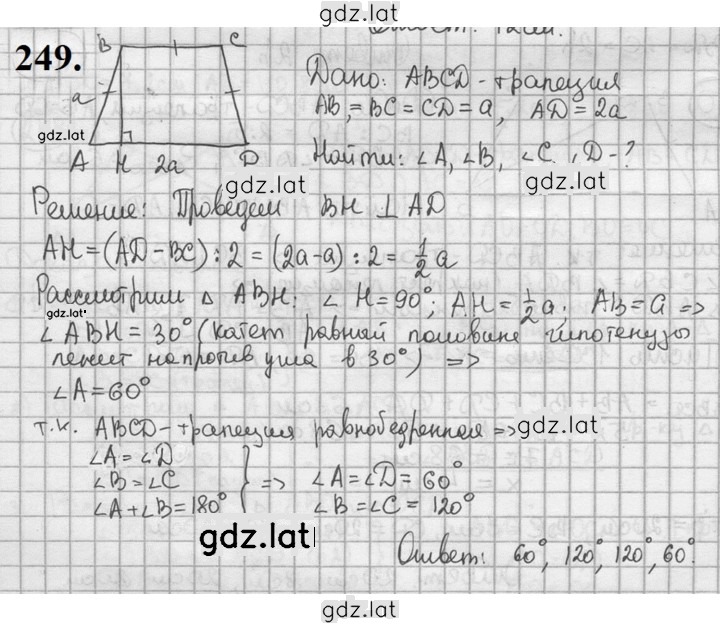 gdz.latt
249.
B C
a
gdz.lat
A H 2a D
Дано: ABCD - трапеция
AB = BC = CD = a, AD = 2a
Найти: ∠A, ∠B, ∠C, ∠D - ?
gdz.lat
gdz.lat
Решение: Проведем BH ⊥ AD
AH = (AD - BC) : 2 = (2a - a) : 2 = 1/2 a
Рассмотрим △ ABH: ∠ H = 90°; AH = 1/2 a; AB = a =>
gdz.lat
∠ ABH = 30° (катет равный половине гипотенузы
лежит напротив угла в 30°) =>
∠A = 60°
т.к. ABCD - трапеция равнобедренная =>
gdz.lat
∠A = ∠D
∠B = ∠C
∠A + ∠B = 180°
=> ∠A = ∠D = 60°
∠B = ∠C = 120°
gdz.lat
Ответ: 60°, 120°, 120°, 60°.
gdz.lat